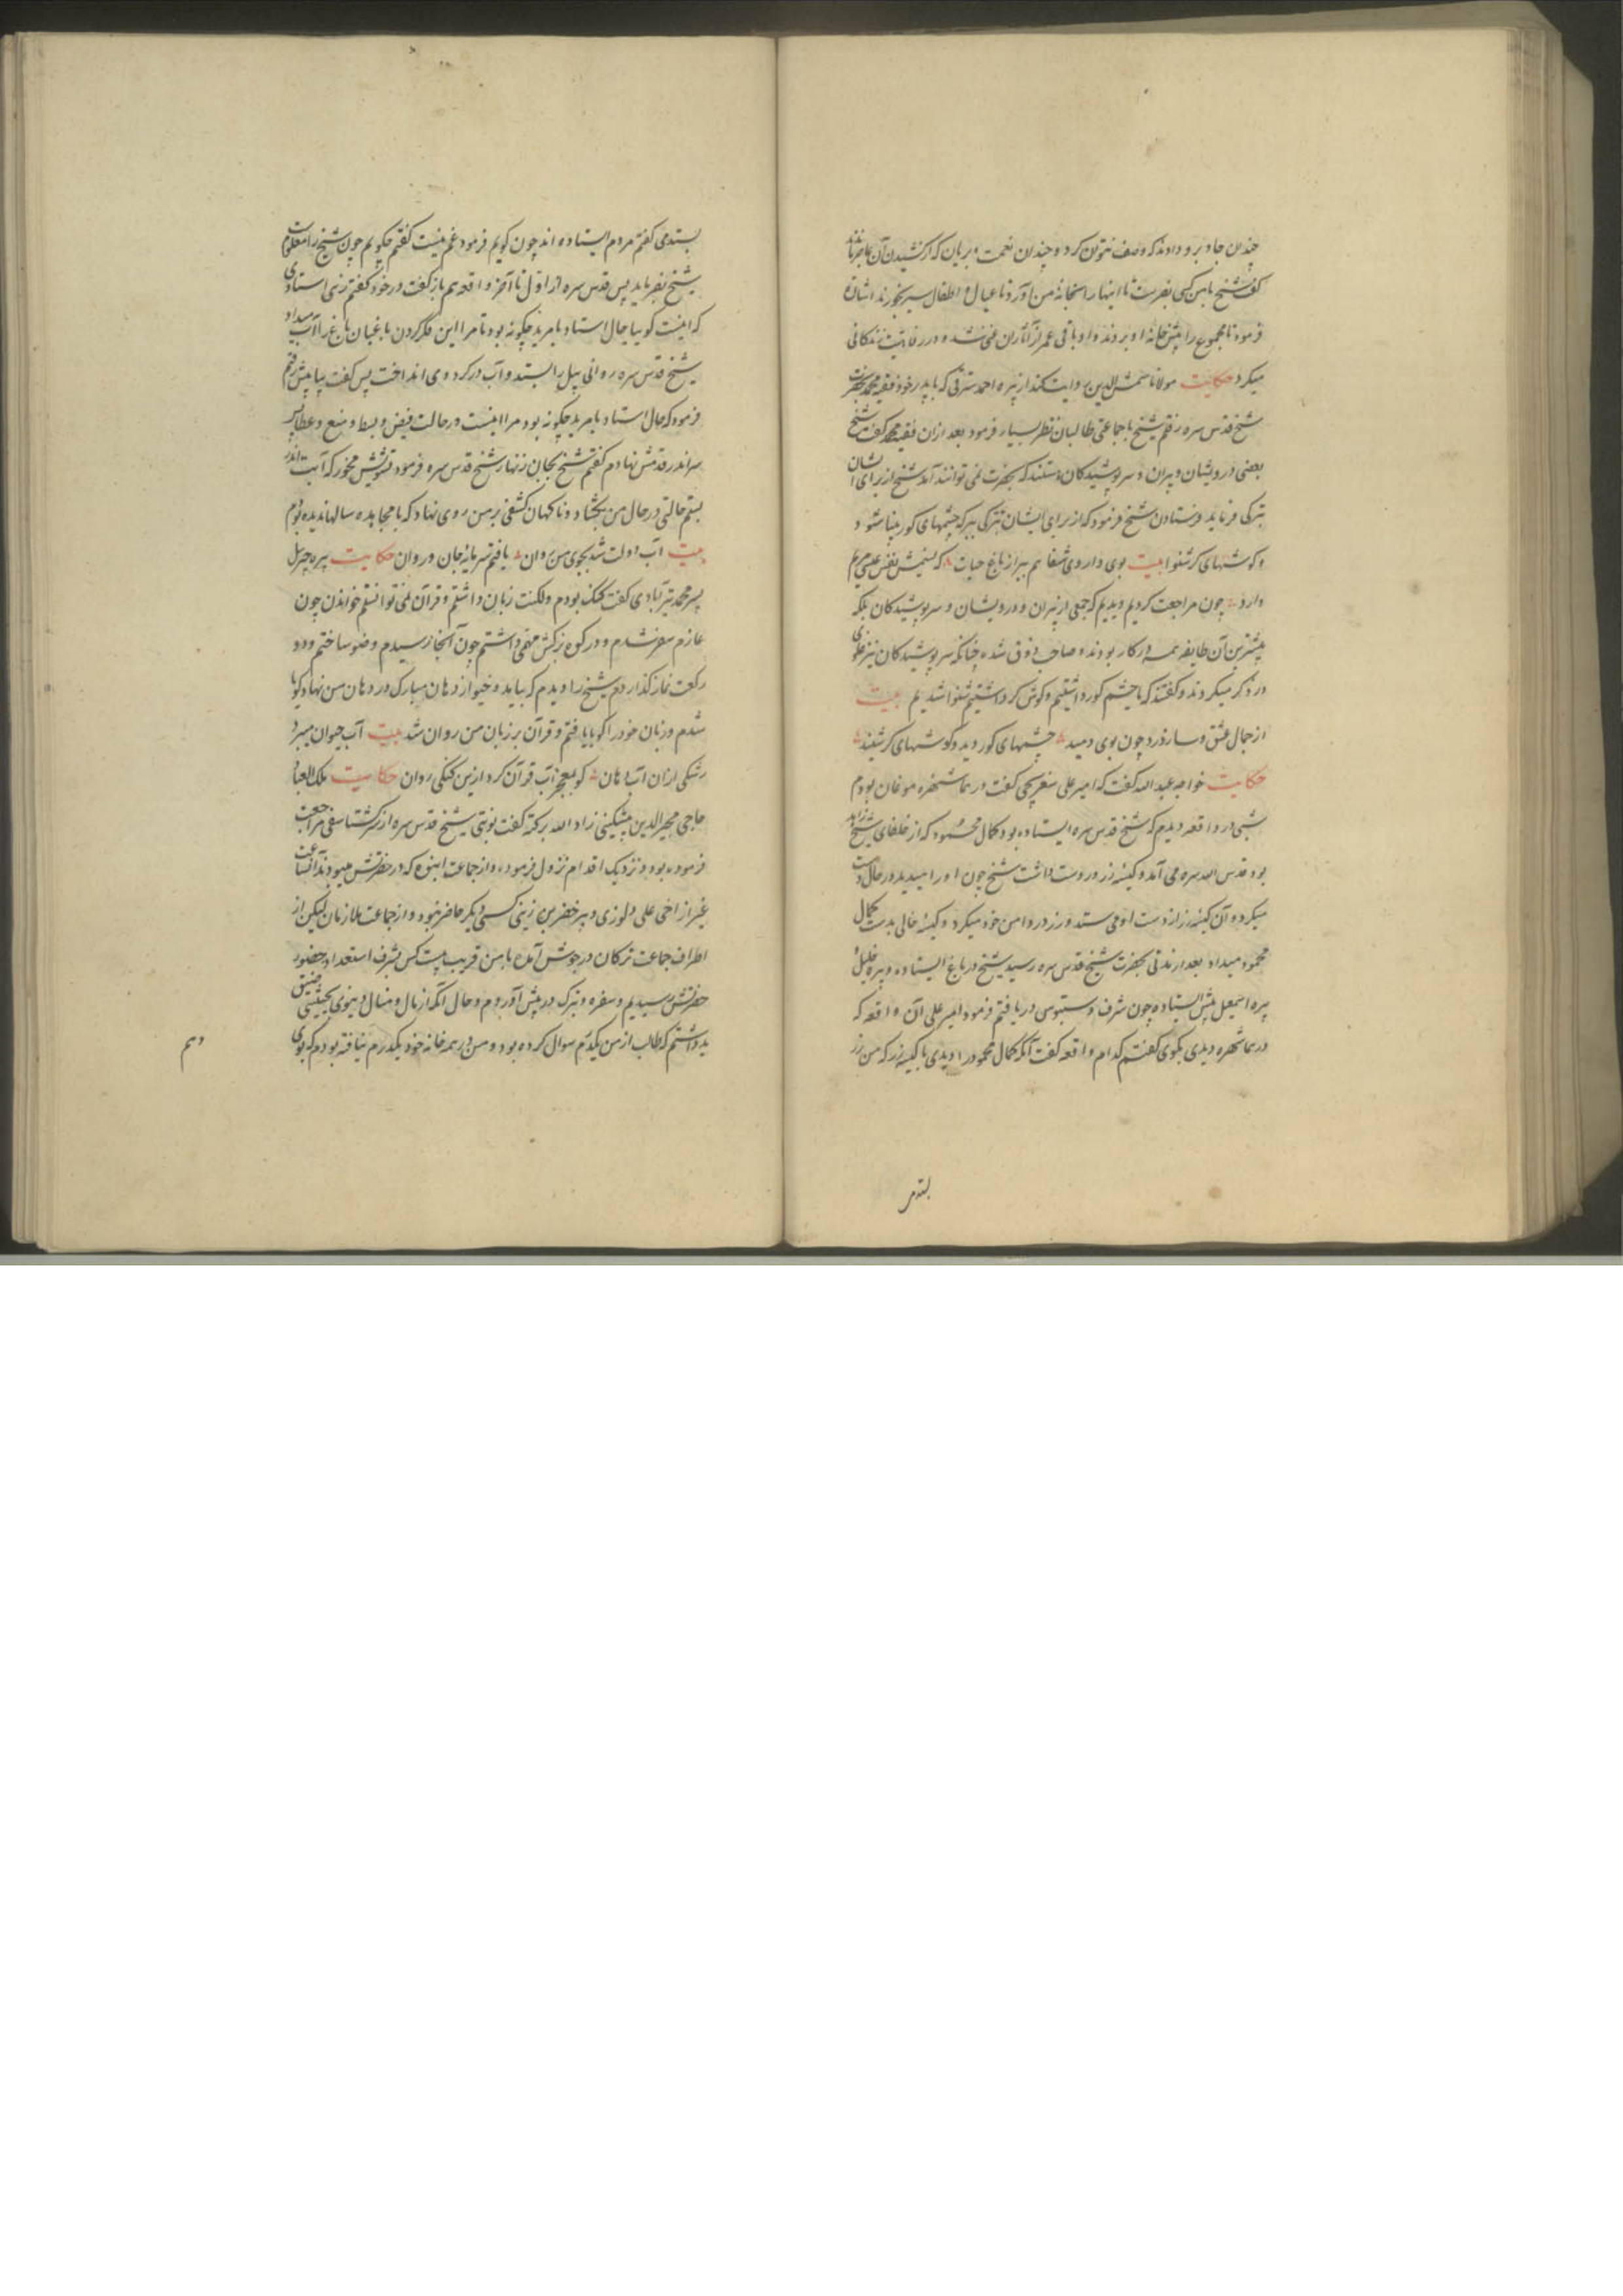 چندان جاد برو دادند که وصف نتوان کرد و چندان نعمت و بریان که از کشیدن آن عاجز ماندند
گفت شیخ با من کسی بفرست تا اینها را بخانهٔ من آورد تا عیال و اطفال سیر بخورند اشارت
فرمود تا مجموع را پیش خانهٔ او بردند و او باقی عمر از آثار آن غنی شد و در رفاهیت زندگانی
میکرد حکایت مولانا شمس الدین روایت کند از پیره احمد که با پدر خود فقیه محمد بحضرت
شیخ قدس سره رفتم شیخ با جماعتی طالبان نظر بسیار فرمود بعد از آن فقیه محمد گفت شیخ
بعضی درویشان و پیران و سرپوشیدگان هستند که بحضرت نمی توانند آمد شیخ از برای ایشان
تبرکی فرماید فرستادن شیخ فرمود که از برای ایشان تبرکی ببر که چشمهای کور بینا شود و
و گوشهای کر شنوا بیت بوی داروی شفا هم ببر از باغ حیات که نسیمش نفس عیسی مریم
دارد چون مراجعت کردیم دیدیم که جمعی از پیران و درویشان و سرپوشیدگان بلکه
بیشترین آن طایفه همه در کار بودند و صاحب ذوق شده چنانکه سرپوشیدگان نیز علوی
در ذکر میکردند و گفتند که ما چشم کور داشتیم و گوش کر داشتیم شنوا شدیم بیت
از جمال عشق و ساز درد چون بوی دمید چشمهای کور دید و گوشهای کر شنید
حکایت خواجه عبد الله گفت که امیر علی سفرچی گفت در هماشهره موغان بودم
شبی در واقعه دیدم که شیخ قدس سره ایستاده بود کمال محمود که از خلفای شیخ زاهد
بود قدس الله سره می آمد و کیسه زر در دست داشت شیخ چون او را میدید در حال دست
میکرد و آن کیسه زر از دست او می ستد و زر در دامن خود میکرد و کیسه خالی بدست کمال
محمود میداد بعد از مدتی بحضرت شیخ قدس سره رسید شیخ در باغ ایستاده و پیره خلیل و
پیره اسمعیل پیش ایستاده چون شرف دستبوسی دریافتم فرمود امیر علی آن واقعه که
در هماشهره دیدی بگوی گفتم کدام واقعه گفت آنکه کمال محمود را دیدی با کیسه زر که من زر
بستدمی
بستدمی گفتم مردم ایستاده اند چون گویم فرمود غم نیست گفتم چگویم چون شیخ را معلومست
شیخ بفرماید پس قدس سره از اول تا آخر واقعه هم باز گفت در خود گفتم زهی استادی
که اینست گوییا حال استاد با مرید چگونه بود تا مرا این فکر کردن باغبان باغ را آب میداد
شیخ قدس سره روانی بیل را بستد و آب در کردوی انداخت پس گفت بیا پیش رفتم
فرمود که حال استاد با مرید چگونه بود مرا اینست در حالت قبض و بسط و منع و عطا پس
سر اندر قدمش نهادم گفتم شیخ بجان زنهار شیخ قدس سره فرمود تشویش مخور که آبت اندر
بستم حالتی در حال من بگشاد و ناگهان کشفی بر من روی نهاد که با مجاهده سالها ندیده بودم
بیت آب دولت شد بجوی من روان یافتم سرمایهٔ جان و روان حکایت پیره جبریل
پسر محمد تبرآبادی گفت گنگ بودم و لکنت زبان داشتم و قرآن نمی توانستم خواندن چون
عازم سفر شدم و در کوه بزکش مهمی داشتم چون آنجا رسیدم وضو ساختم و دو
رکعت نماز گذاردم شیخ را دیدم که بیاید و خیو از دهان مبارک در دهان من نهاد گویا
شدم و زبان خود را گویا یافتم و قرآن بر زبان من روان شد بیت آب حیوان میبرد
رشکی از آن آب دهان کو بمعجز آب قرآن کرد ازین گنگی روان حکایت ملک العباد
حاجی مجیر الدین پیشکینی زاد الله برکته گفت نوبتی شیخ قدس سره از سر گشتاسفی مراجعت
فرموده بود و نزدیک اقدام نزول فرموده و از جماعت انبوه که در حضرتش میبودند آن ساعت
غیر از اخی علی دلوزی و پیر خضر بن زینی کسی دیگر حاضر نبود و از جماعت ملازمان لیکن از
اطراف جماعت ترکان در جوش آمده با من قریب بیست کس بشرف استعداد حضور
حضرتش رسیدیم و سفره و تبرک در پیش آوردم و حال آنکه از مال و منال دنیوی بحیثیتی ضیق
ید داشتم که طالب از من یکدرم سوال کرده بود و من در همه خانه خود یکدرم نیافته بودم که بوی
دهم